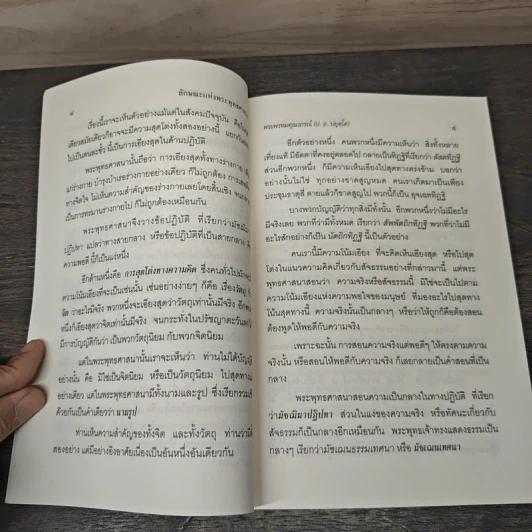 ๔
ลักษณะแห่งพระพุทธศา
เรื่องนี้เราจะเห็นตัวอย่างแม้แต่ในสังคมปัจจุบัน คือใน
เดียวสมัยเดียวก็อาจจะมีความสุดโต่งทั้งสองอย่างนี้
ไปเป็นคนละขั้ว นี้เป็นการเอียงสุดในด้านปฏิบัติ
พระพุทธศาสนานั้นถือว่า การเอียงสุดทั้งทางร่างกาย
แก่ร่างกาย บำรุงบำเรอร่างกายอย่างเดียว ก็ไม่ถูกต้อง การ
ทางจิตใจ ไม่เห็นความสำคัญของร่างกายเลยโดยสิ้นเชิง
เป็นการทรมานร่างกายไป ก็ไม่ถูกต้องเหมือนกัน
พระพุทธศาสนาจึงวางข้อปฏิบัติ ที่เรียกว่ามัช
ปฏิปทา แปลว่าทางสายกลาง หรือข้อปฏิบัติที่เป็นสายกลาง
ความพอดี นี้ก็เป็นแง่หนึ่ง
อีกด้านหนึ่งคือ การสุดโต่งทางความคิด ซึ่งคนทั่วไปมัก
ความโน้มเอียงที่จะเป็นเช่นนั้น เช่นอย่างง่ายๆ ก็คือ เรื่องวัตถุ
ว่าอะไรมีจริง พวกหนึ่งจะเอียงสุดว่าวัตถุเท่านั้นมีจริง อีกพวก
หนึ่งก็เอียงสุดว่าจิตเท่านั้นมีจริง จนกระทั่งในปรัชญาตะวันตก
มีการบัญญัติกันว่า เป็นพวกวัตถุนิยม กับพวกจิตนิยม
แต่ในพระพุทธศาสนานั้นเราจะเห็นว่า ท่านไม่ได้บัญญัติ
อย่างนั้น คือ มิใช่เป็นจิตนิยม หรือเป็นวัตถุนิยม ไปสุดทาง
อย่างเดียว แต่ในพระพุทธศาสนามีทั้งนามและรูป ซึ่งเรียกรวม
ด้วยกันเป็นคำเดียวว่า นามรูป
ท่านเห็นความสำคัญของทั้งจิต และทั้งวัตถุ ท่านว่ามี
สองอย่าง แต่มีอย่างอิงอาศัยเนื่องเป็นอันหนึ่งอันเดียวกัน
พระพรหมคุณาภรณ์ (ป. อ. ปยุตฺโต)
๕
อีกตัวอย่างหนึ่ง คนพวกหนึ่งมีความเห็นว่า สิ่งทั้งหลาย
เที่ยงแท้ มีอัตตาที่คงอยู่ตลอดไป กลายเป็นทิฏฐิที่เรียกว่า สัสตทิฏฐิ
ส่วนอีกพวกหนึ่ง ก็มีความเห็นเอียงไปสุดทางตรงข้าม บอกว่า
อย่างนั้นไม่ใช่ ทุกอย่างขาดสูญหมด คนเราเกิดมาเป็นเพียง
ประชุมธาตุสี่ ตายแล้วก็ขาดสูญไป พวกนี้ก็เป็น อุจเฉททิฏฐิ
บางพวกบัญญัติว่าทุกสิ่งมีทั้งนั้น อีกพวกหนึ่งว่าไม่มีอะไร
มีจริงเลย พวกที่ว่ามีทั้งหมด เรียกว่า สัพพัตถิกทิฏฐิ พวกที่ว่าไม่มี
อะไรสักอย่างก็เป็น นัตถิกทิฏฐิ นี้เป็นตัวอย่าง
คนเรานี้มีความโน้มเอียง ที่จะคิดเห็นเอียงสุด หรือไปสุด
โต่งในแนวความคิดเกี่ยวกับสัจธรรมอย่างที่กล่าวมานี้ แต่พระ
พุทธศาสนาสอนว่า ความจริงหรือสัจธรรมนั้น มิใช่จะเป็นไปตาม
ความโน้มเอียงแห่งความพอใจของมนุษย์ ที่มองอะไรไปสุดทาง
โน้นสุดทางนี้ ความจริงนั้นเป็นกลางๆ หรือว่าให้ถูกก็คือต้องสอน
ต้องพูดให้พอดีกับความจริง
เพราะฉะนั้น การสอนความจริงแต่พอดีๆ ให้ตรงตามความ
จริงนั้น หรือสอนให้พอดีกับความจริง ก็เลยกลายเป็นคำสอนที่เป็น
กลาง
พระพุทธศาสนาสอนความเป็นกลางในทางปฏิบัติ ที่เรียก
ว่ามัชฌิมาปฏิปทา ส่วนในแง่ของความจริง หรือทัศนะเกี่ยวกับ
สัจธรรมก็เป็นกลางอีกเหมือนกัน พระพุทธเจ้าทรงแสดงธรรมเป็น
กลางๆ เรียกว่ามัชเฌนธรรมเทศนา หรือ มัชเฌนเทศนา